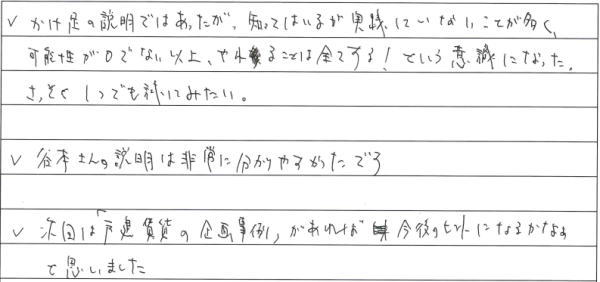 ✓ かけ足の説明ではあったが、知ってはいるが実践していないことが多く、
可能性が0でない以上、やれることは全てする！という意識になった。
さっそく1つでも試してみたい。
✓ 谷本さんの説明は非常に分かりやすかったです
✓ 次回は「戸建賃貸の企画事例」があれば 今後の ヒントになるかなぁ
と思いました